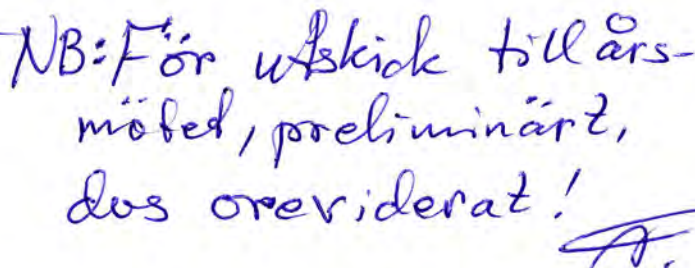 NB: För utskick till års-
mötet, preliminärt,
dvs oreviderat!